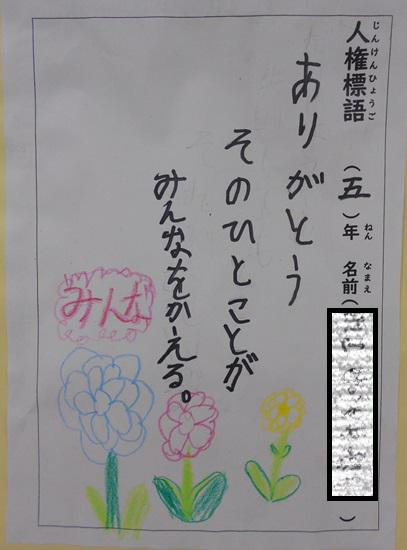 人権標語 (五)年 名前( )
じんけんひょうご ねん なまえ
ありがとう
そのひとことが
みんなをかえる。
みんな